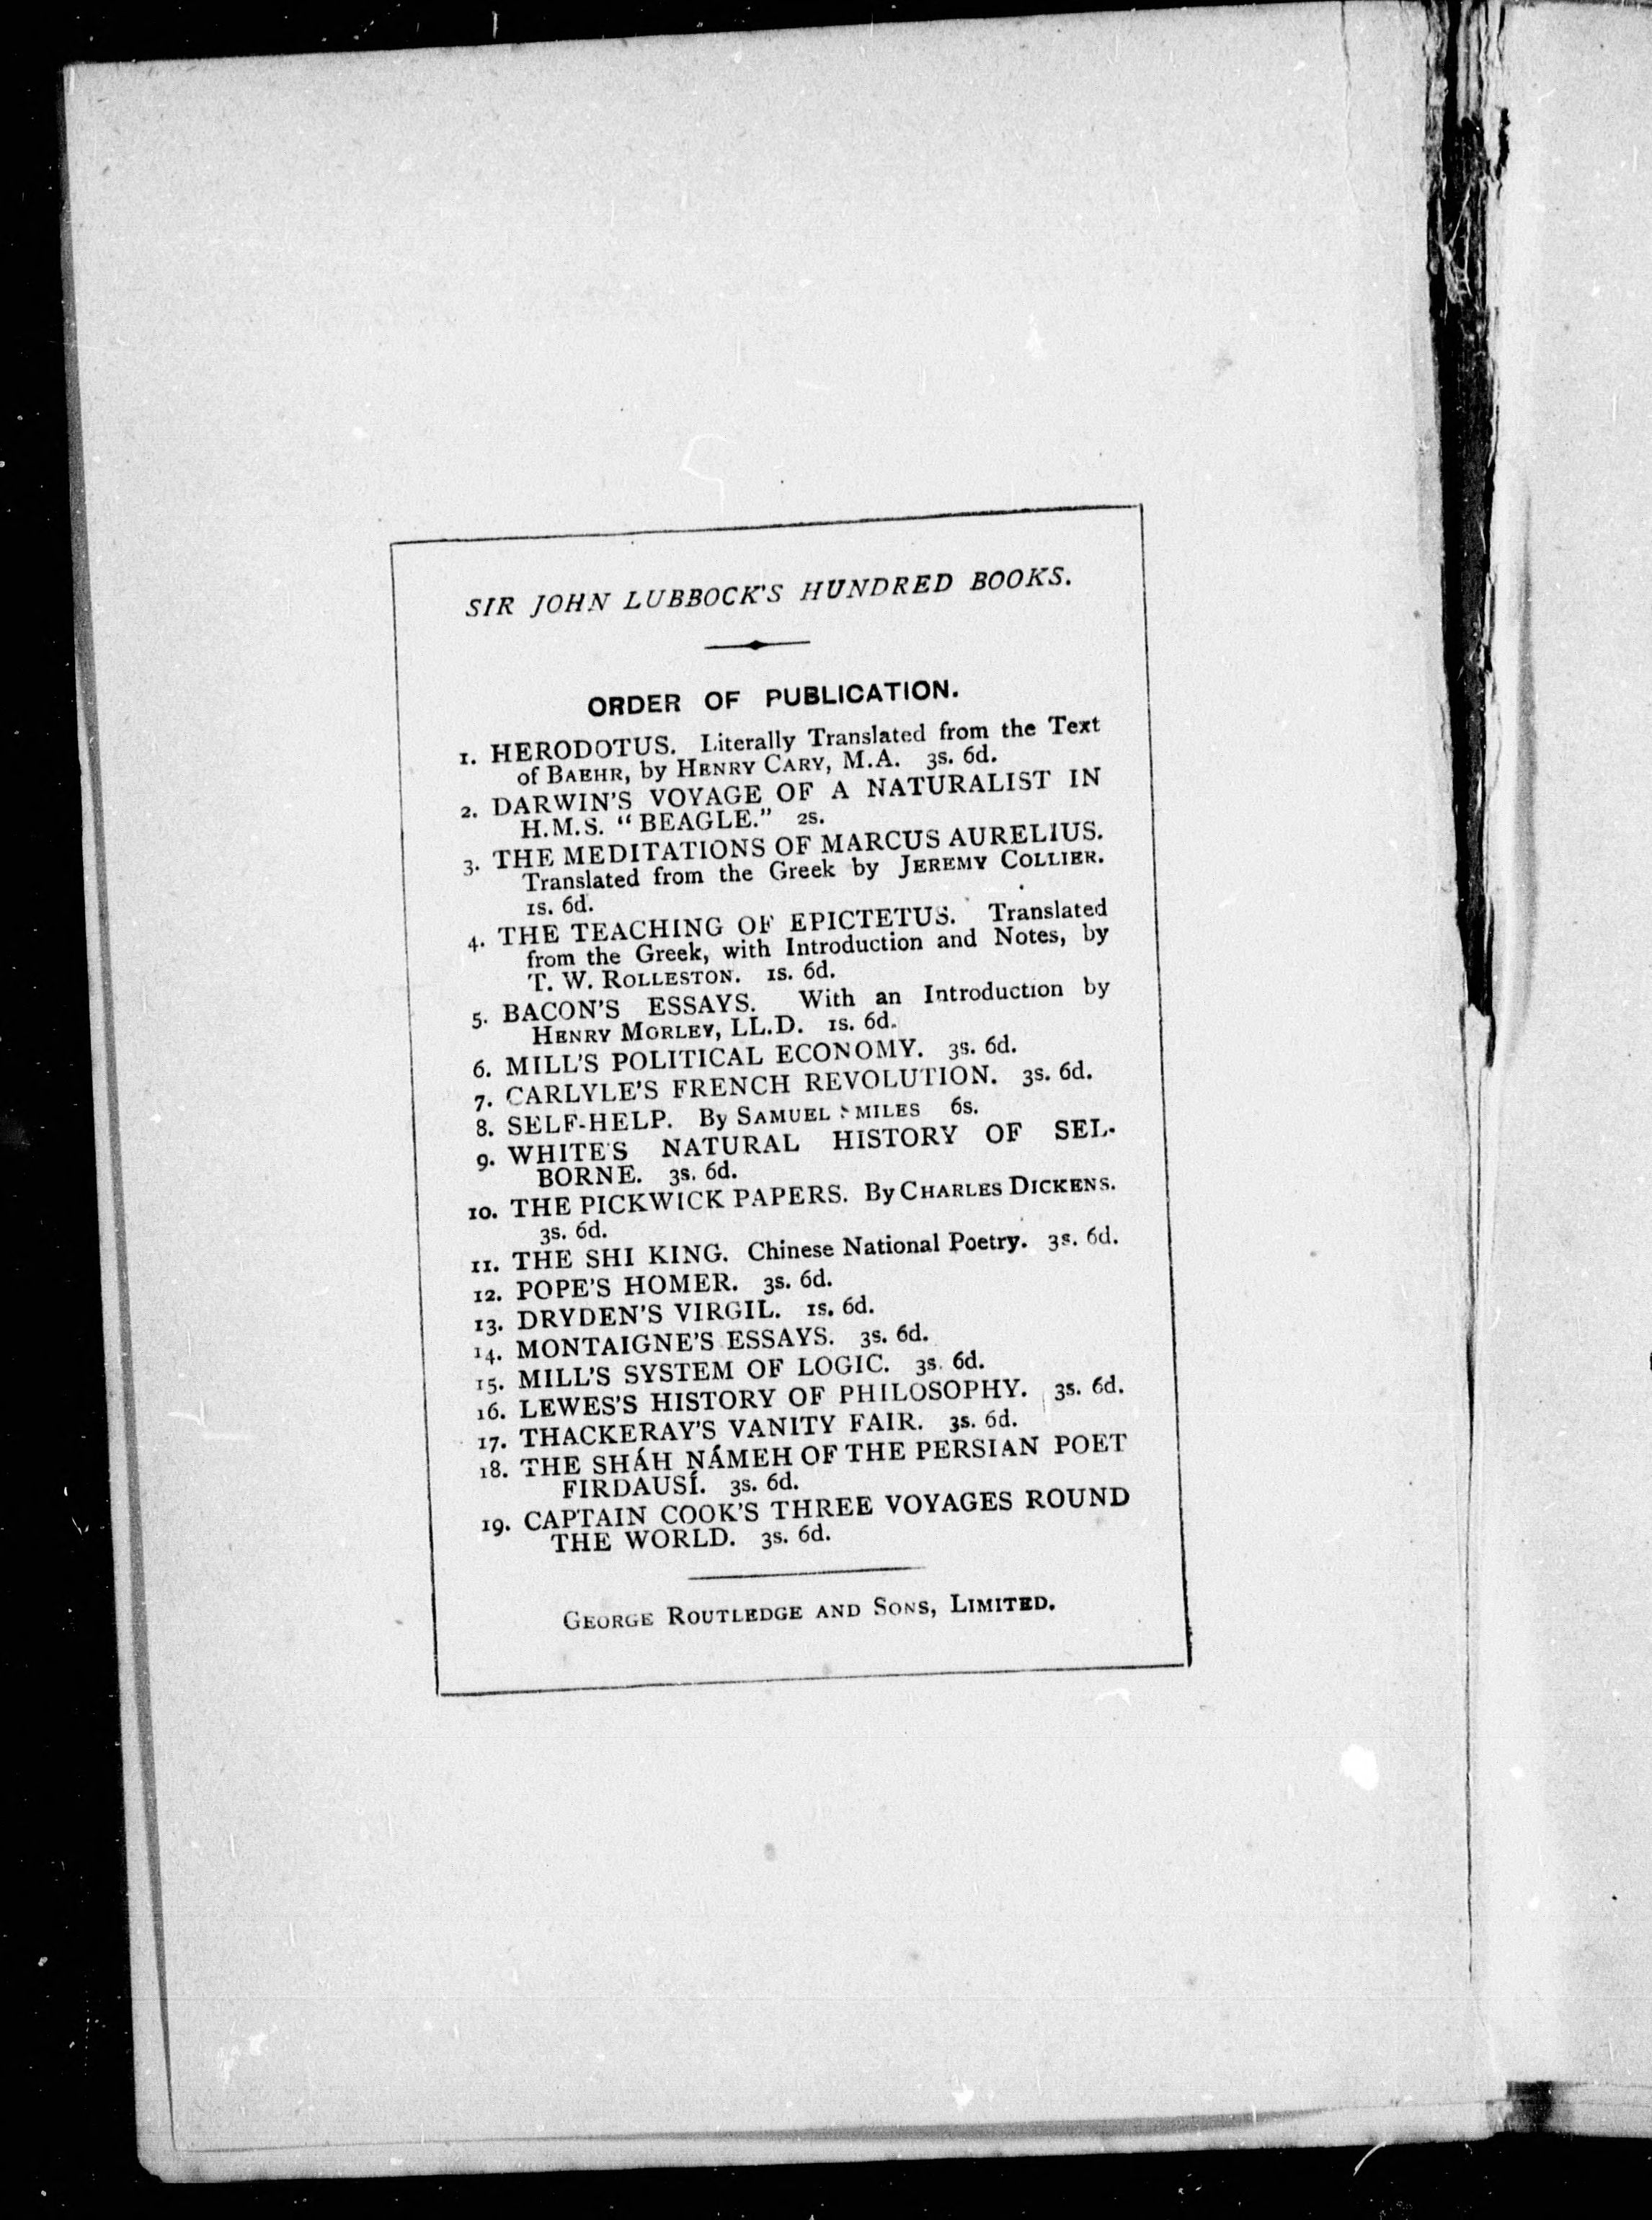 SIR JOHN LUBBOCK'S HUNDRED BOOKS.
ORDER OF PUBLICATION.
1. HERODOTUS. Literally Translated from the Text
of BAEHR, by HENRY CARY, M.A. 3s. 6d.
2. DARWIN'S VOYAGE OF A NATURALIST IN
H.M.S. "BEAGLE." 2s.
3. THE MEDITATIONS OF MARCUS AURELIUS.
Translated from the Greek by JEREMY COLLIER.
1s. 6d.
4. THE TEACHING OF EPICTETUS. Translated
from the Greek, with Introduction and Notes, by
T. W. ROLLESTON. 1s. 6d.
5. BACON'S ESSAYS. With an Introduction by
HENRY MORLEY, LL.D. 1s. 6d.
6. MILL'S POLITICAL ECONOMY. 3s. 6d.
7. CARLYLE'S FRENCH REVOLUTION. 3s. 6d.
8. SELF-HELP. By SAMUEL SMILES 6s.
9. WHITE'S NATURAL HISTORY OF SEL-
BORNE. 3s. 6d.
10. THE PICKWICK PAPERS. By CHARLES DICKENS.
3s. 6d.
11. THE SHI KING. Chinese National Poetry. 3s. 6d.
12. POPE'S HOMER. 3s. 6d.
13. DRYDEN'S VIRGIL. 1s. 6d.
14. MONTAIGNE'S ESSAYS. 3s. 6d.
15. MILL'S SYSTEM OF LOGIC. 3s. 6d.
16. LEWES'S HISTORY OF PHILOSOPHY. 3s. 6d.
17. THACKERAY'S VANITY FAIR. 3s. 6d.
18. THE SHÁH NÁMEH OF THE PERSIAN POET
FIRDAUSÍ. 3s. 6d.
19. CAPTAIN COOK'S THREE VOYAGES ROUND
THE WORLD. 3s. 6d.
GEORGE ROUTLEDGE AND SONS, LIMITED.